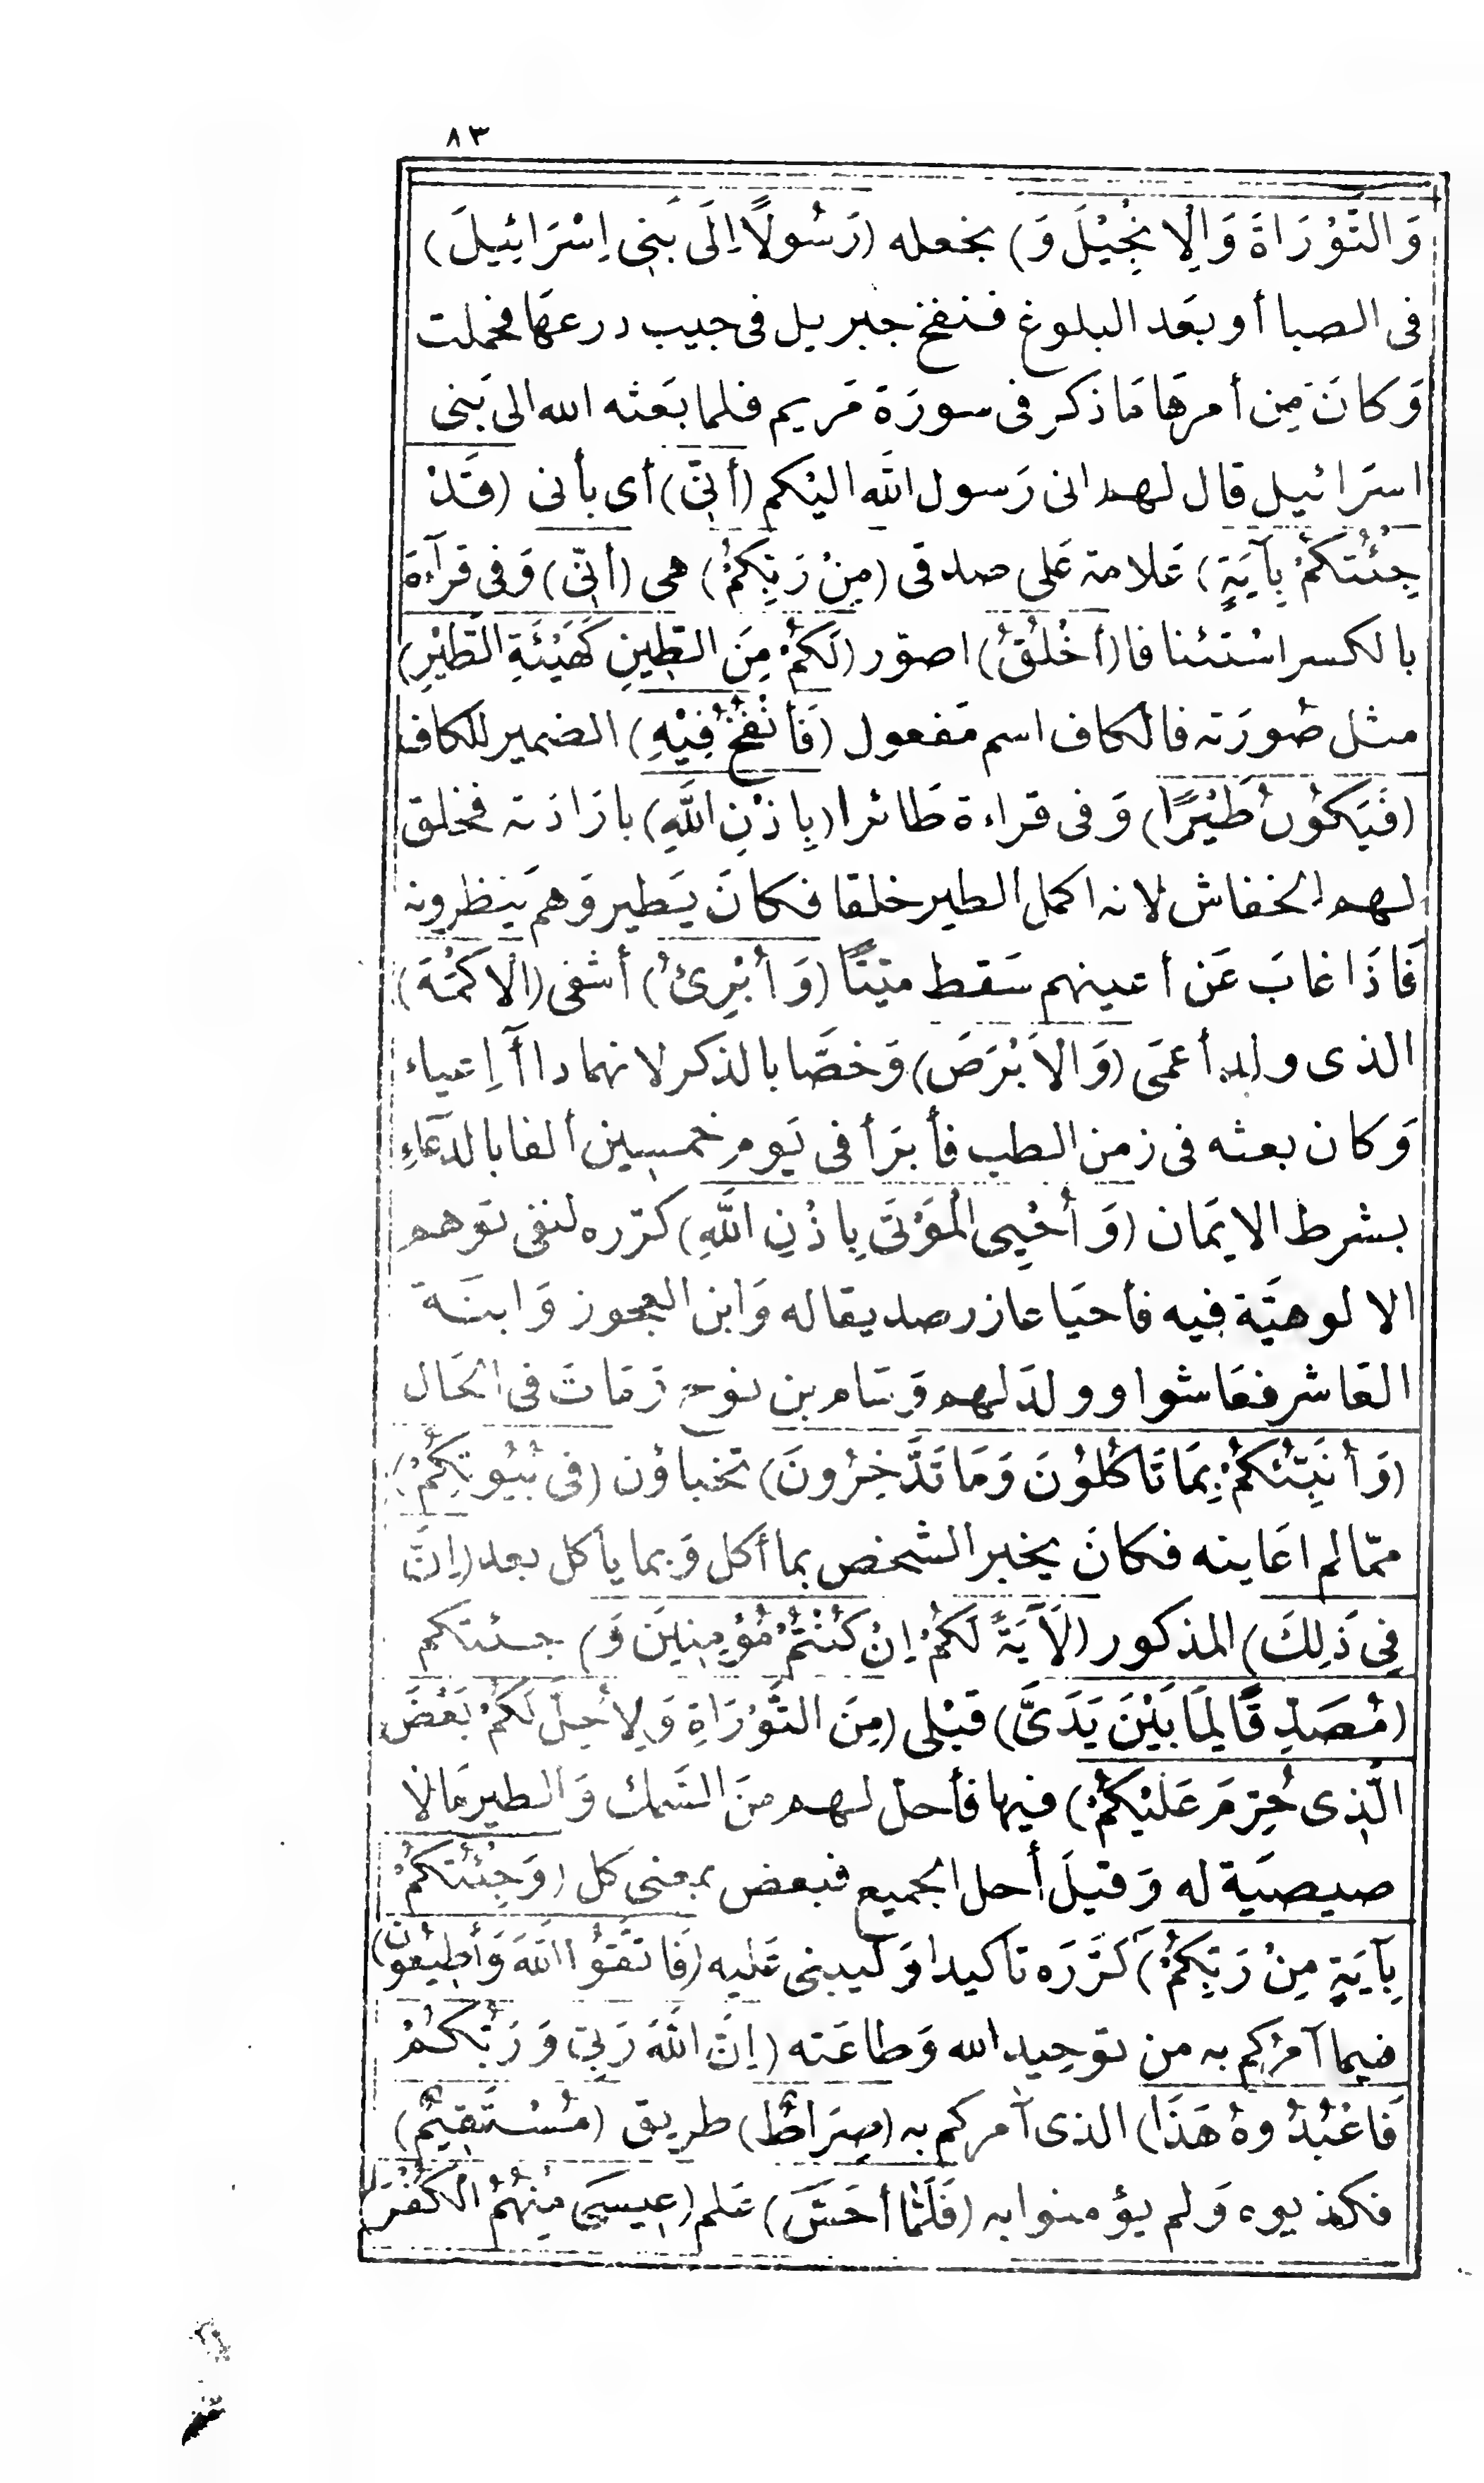 ٨٣
وَالتَّوْرَاةَ وَالِانْجِيْلَ وَ) نجعله (رَسُولًا اِلَى بَنِى اِسْرَائِيلَ)
فى الصبا أو بعَد البلوغ فنفخ جبريل فى جيب درعهَا فحملت
وَكانَ مِن أمرهَا مَا ذكر فى سورَة مَريم فلما بعَثه الله الى بَنى
اسرَائيل قال لهم انى رَسول الله اليْكم (أَنِّى) أى بأنى (قَدْ
جِئْتُكُمْ بِآيَةٍ) عَلامة عَلى صدقى (مِنْ رَبِّكُمْ) هى (أَنِّى) وَفى قرآءة
بالكسر اسْتئنافا (أَخْلُقُ) اصوّر (لَكُمْ مِنَ الطِّينِ كَهَيْئَةِ الطَّيْرِ)
مثل صُورَته فالكاف اسم مَفعول (فَأَنْفُخُ فِيْهِ) الضمير للكاف
(فَيَكُونُ طَيْرًا) وَفى قراءة طَائرا (بِاِذْنِ اللَّهِ) بارَادَته فخلق
لهم الخفاش لانه اكمل الطير خلقا فكانَ يَطير وَهم يَنظرونه
فَاذَا غابَ عَن أعينهم سَقط ميّتًا (وَأُبْرِئُ) أشفى (الْاَكْمَهَ)
الذى ولد أعمَى (وَالْاَبْرَصَ) وَخصَّا بالذكر لانهما داآ اِعياء
وَكان بعثه فى زمن الطب فأبرَأ فى يَوم خمسين ألفا بالدعَاءِ
بشرط الايمَان (وَأُحْيِى الْمَوْتَى بِاِذْنِ اللَّهِ) كرّره لنفى توهم
الالوهيَّة فيه فأحيَا عازر صديقا له وَابن العجوز وَابنَة
العَاشر فعَاشوا وولدَ لهم وَسَام بن نوح وَمَاتَ فى الحَال
(وَأُنَبِّئُكُمْ بِمَا تَأْكُلُوْنَ وَمَا تَدَّخِرُونَ) تخباؤن (فى بُيُوتِكُمْ)
ممّا لم اعَاينه فكانَ يخبر الشخص بما أكل وَبما يأكل بعد (اِنَّ
فِى ذَلِكَ) المذكور (لَآيَةً لَكُمْ اِنْ كُنْتُمْ مُؤْمِنِيْنَ وَ) جئتكم
(مُصَدِّقًا لِمَا بَيْنَ يَدَىَّ) قبْلى (مِنَ التَّوْرَاةِ وَلِأُحِلَّ لَكُمْ بَعْضَ
الَّذِى حُرِّمَ عَلَيْكُمْ) فيها فأحلّ لهم منَ السَّمك وَالطير مَالا
صيصيَة له وَقيلَ أحل الجميع فبعض بمعنى كل (وَجِئْتُكُمْ
بِآيَةٍ مِنْ رَبِّكُمْ) كَرَّرَه تأكيدا وَليبنى عَليه (فَاتَّقُوا اللَّهَ وَأَطِيْعُونِ)
فيما آمرُكم به من توحيد الله وَطاعَته (اِنَّ اللَّهَ رَبِّى وَرَبُّكُمْ
فَاعْبُدُوهُ هَذَا) الذى آمركم به (صِرَاطٌ) طريق (مُسْتَقِيْمٌ)
فكذبوه وَلم يؤمنوا به (فَلَمَّا أَحَسَّ) عَلم (عِيسَى مِنْهُمُ الْكُفْرَ)